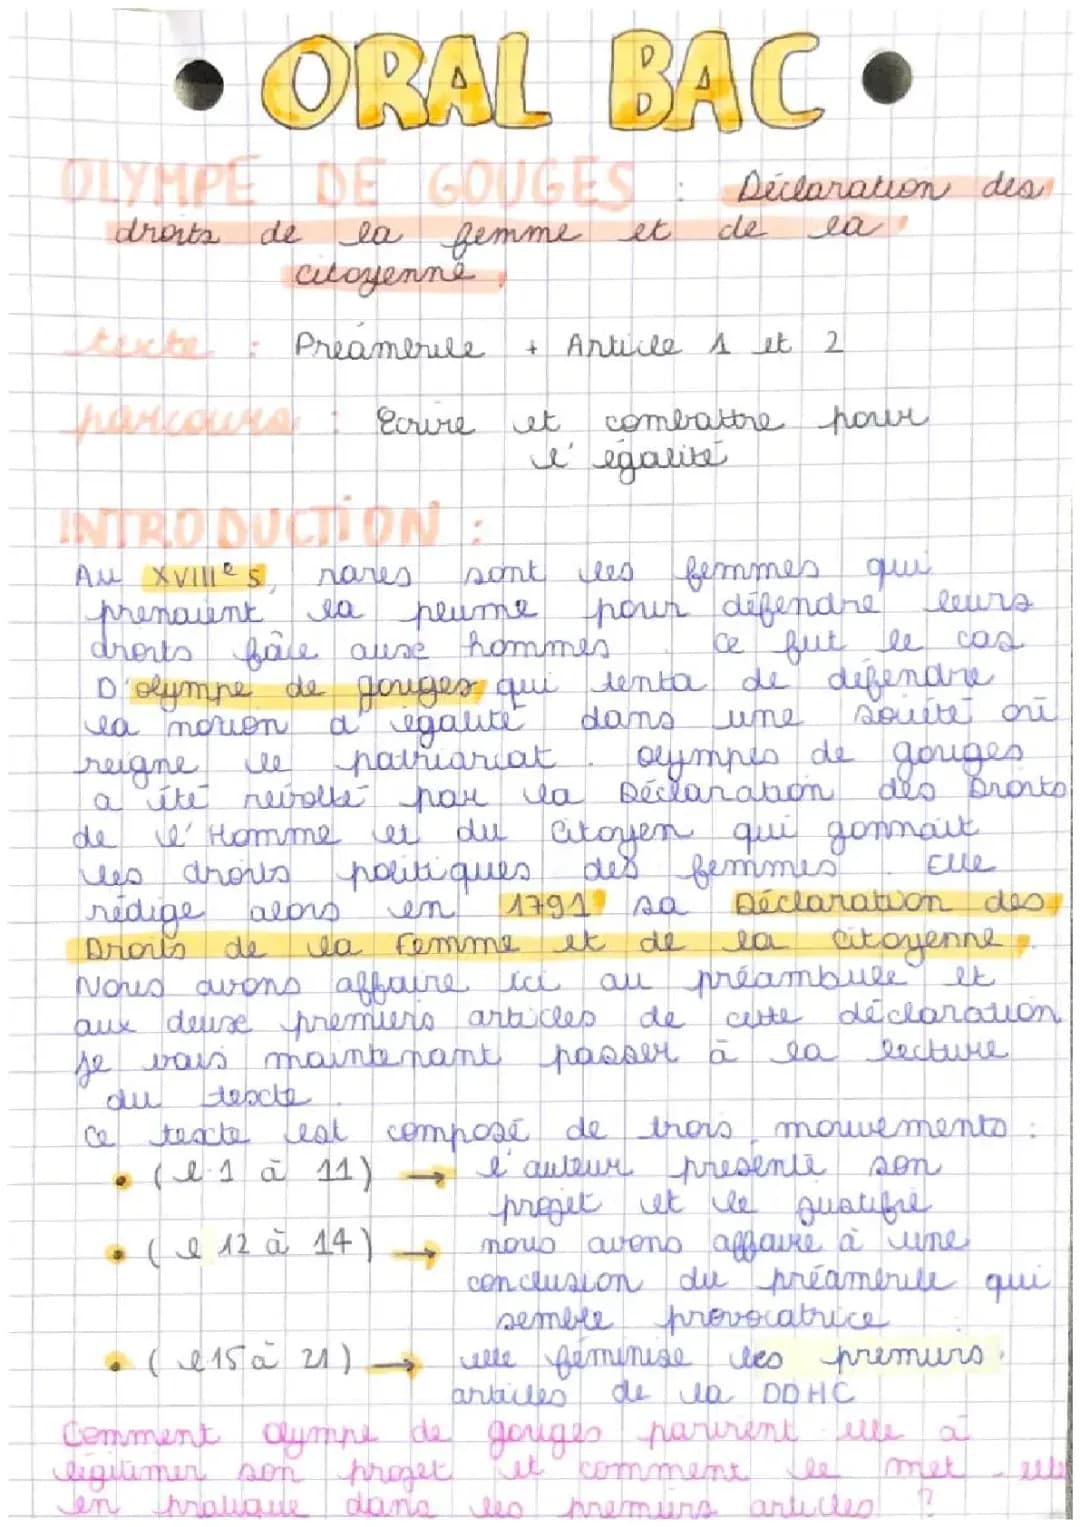 • ORAL BAC •
OLYMPE DE GOUGES : Déclaration des
droits de la femme et de la
citoyenne
texte : Préambule + Article 1 et 2
parcours : Ecrire et combattre pour
l'égalité
INTRODUCTION :
Au XVIIIe s, rares sont les femmes qui
prenaient la plume pour défendre leurs
droits fâce aux hommes. Ce fut le cas
D'olympe de gouges qui tenta de défendre
la notion d'égalité dans une société où
reigne le patriariat. olympes de gouges
a été révolté par la Déclaration des Droits
de l'Homme et du Citoyen qui gommait
les droits politiques des femmes. Elle
rédige alors en 1791 sa Déclaration des
Droits de la Femme et de la citoyenne.
Nous avons affaire ici au préambule et
aux deux premiers articles de cette déclaration
Je vais maintenant passer à la lecture
du texte.
Ce texte est composé de trois mouvements :
• (l.1 à 11) → l'auteur présente son
projet et le justifie
• (l 12 à 14) → nous avons affaire à une
conclusion du préambule qui
semble provocatrice
• (l 15 à 21) → elle féminise les premiers
articles de la DDHC
Comment olympe de gouges parvient elle à
légitimer son projet et comment le met-elle
en pratique dans les premiers articles ?